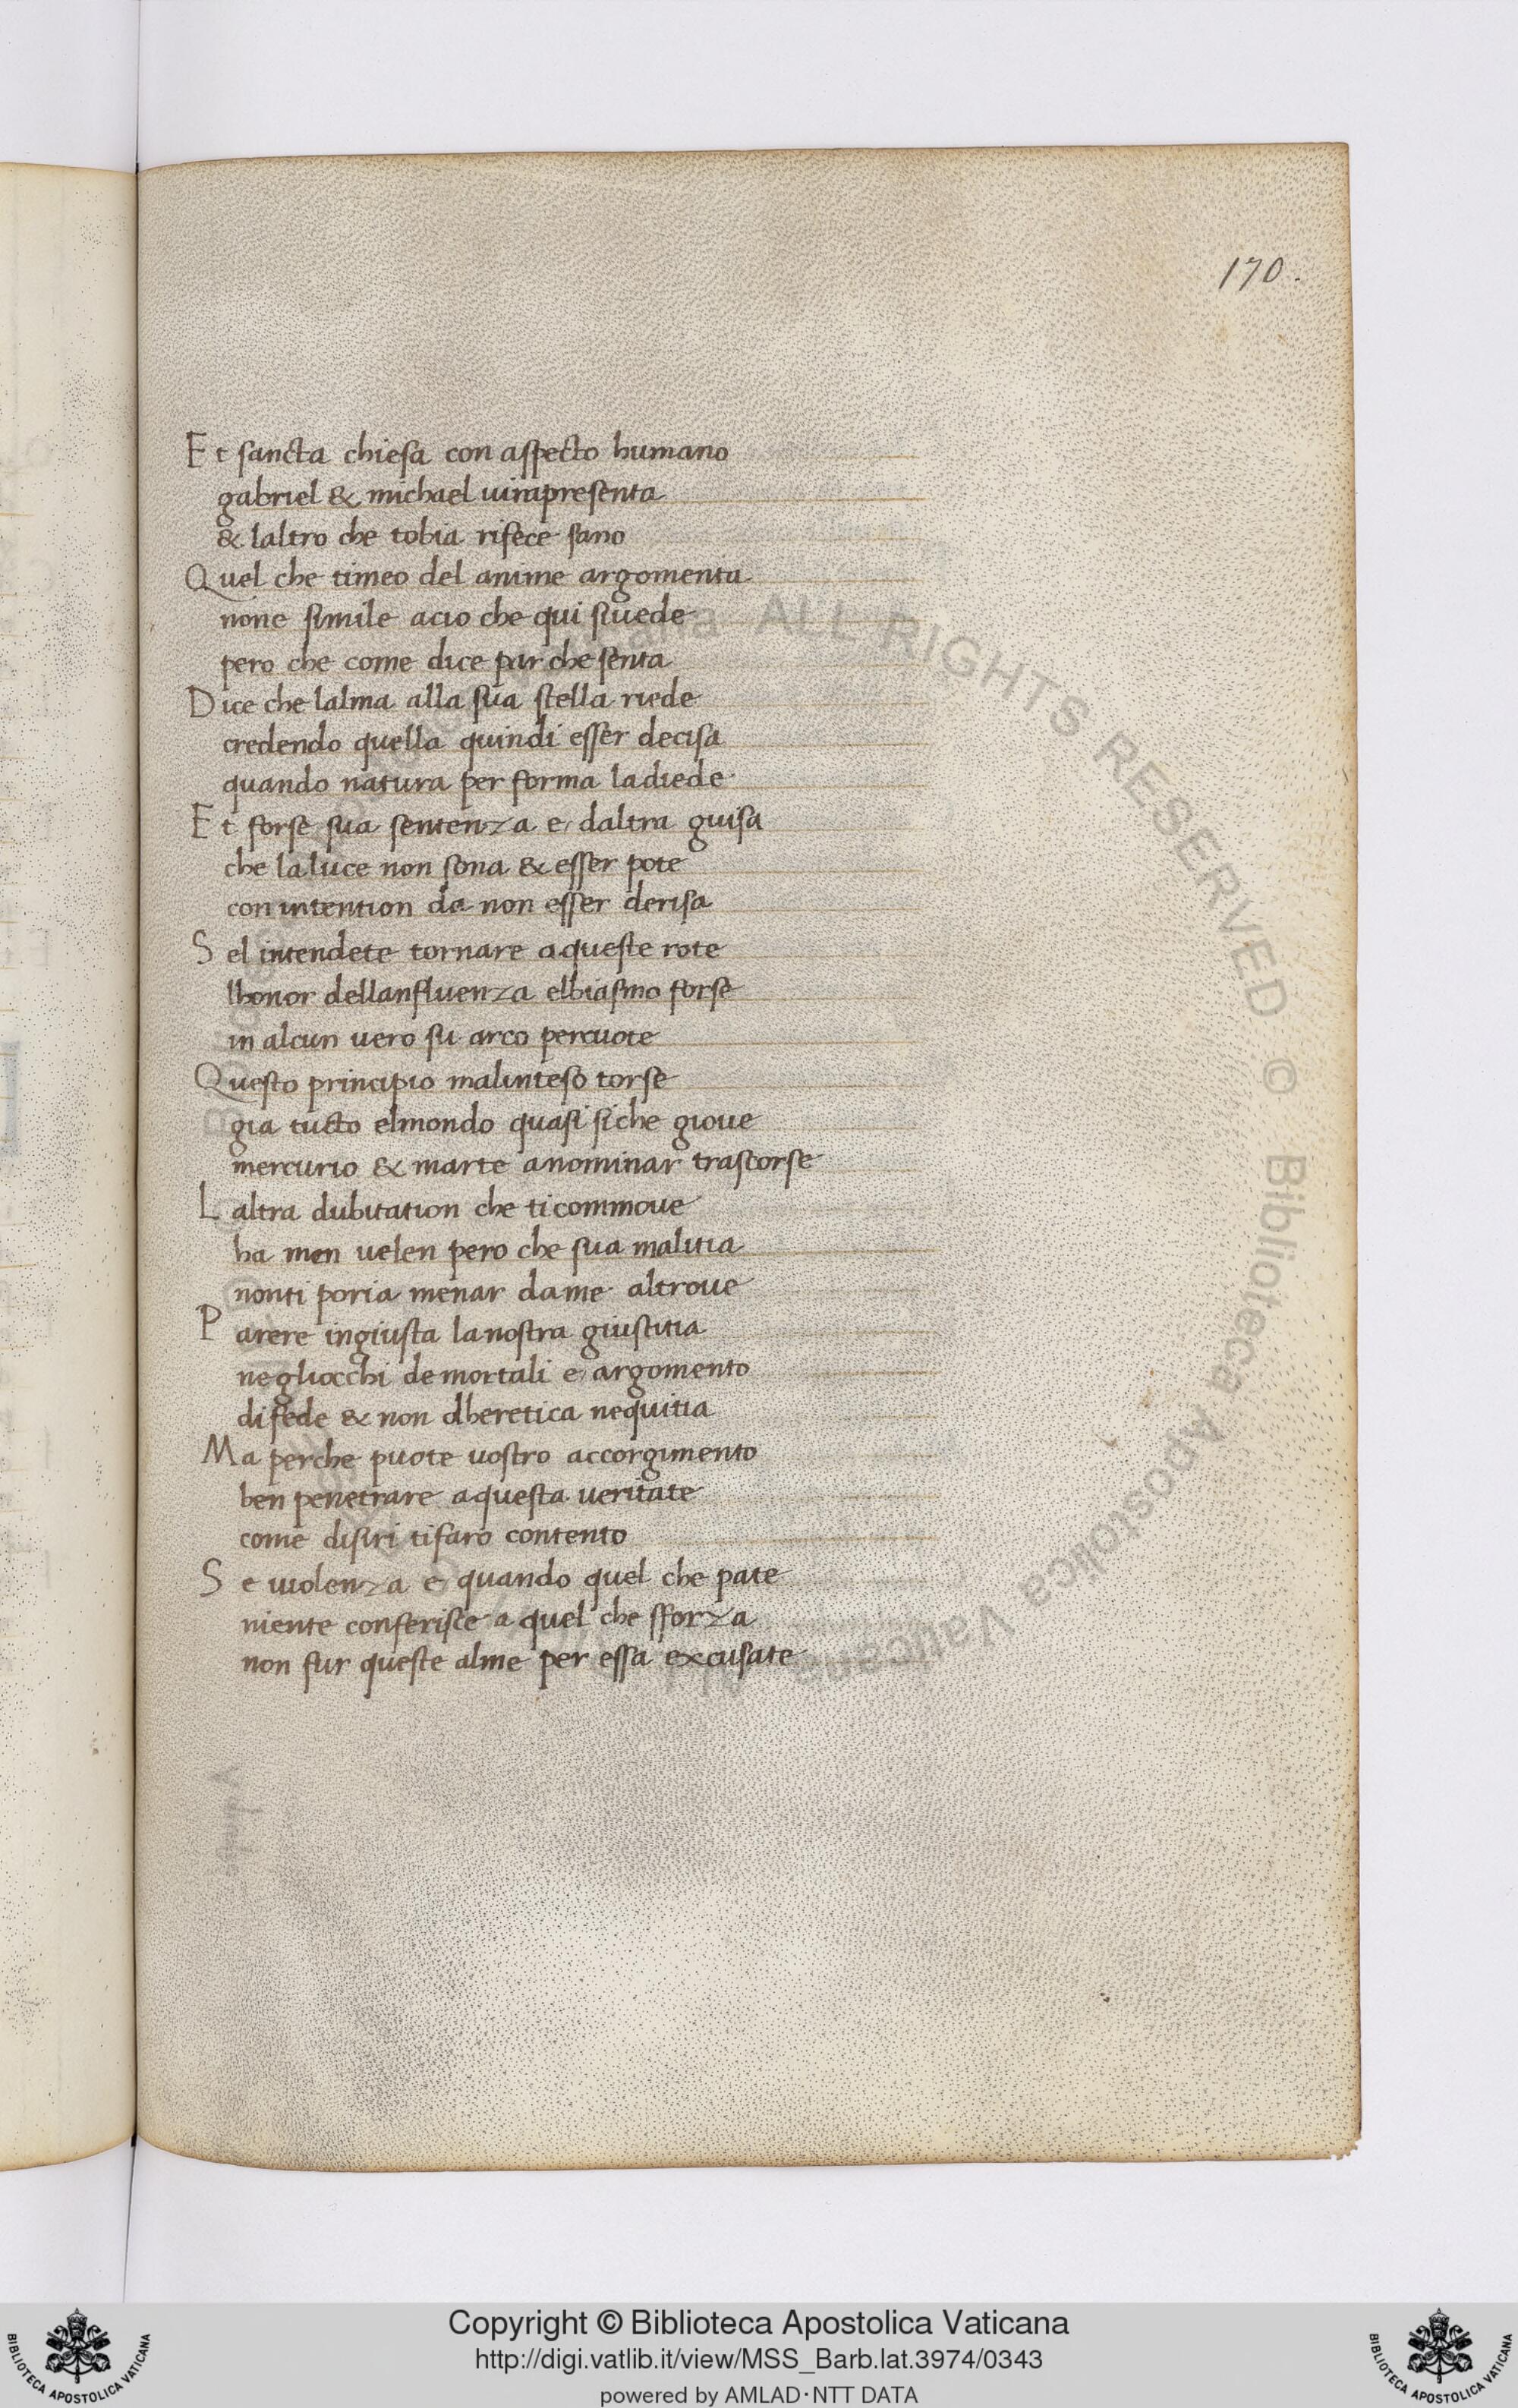 170.
Et sancta chiesa con aspecto humano
gabriel & michael uirapresenta
& laltro che tobia rifece sano
Quel che timeo del anime argomenta
none simile acio che qui siuede
pero che come dice par che senta
Dice che lalma alla sua stella riede
credendo quella quindi esser decisa
quando natura per forma ladiede
Et forse sua sentenza e daltra guisa
che la luce non sona & esser pote
con intention da non esser derisa
Sel intendete tornare aqueste rote
lhonor dellanfluenza elbiasmo forse
in alcun uero su arco percuote
Questo principio malinteso torse
gia tucto elmondo quasi siche gioue
mercurio & marte anominar trascorse
Laltra dubitation che ticommoue
ha men uelen pero che sua malitia
nonti poria menar dame altroue
Parere ingiusta lanostra giustitia
negliocchi demortali e argomento
difede & non dheretica nequitia
Ma perche puote uostro accorgimento
ben penetrare aquesta ueritate
come disiri tifaro contento
Se uiolenza e quando quel che pate
niente conferisce a quel che sforza
non fur queste alme per essa excusate
ALL RIGHTS RESERVED © Biblioteca Apostolica Vaticana
Copyright © Biblioteca Apostolica Vaticana
http://digi.vatlib.it/view/MSS_Barb.lat.3974/0343
powered by AMLAD·NTT DATA
BIBLIOTECA APOSTOLICA VATICANA
BIBLIOTECA APOSTOLICA VATICANA